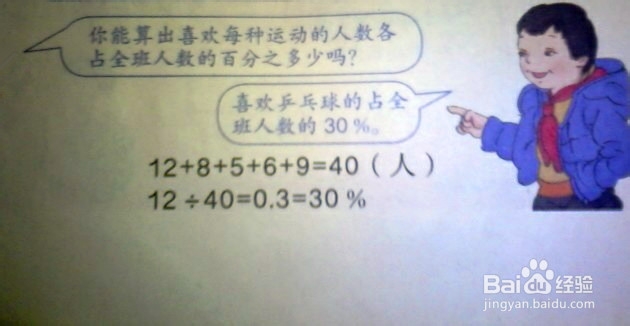 你能算出喜欢每种运动的人数各
占全班人数的百分之多少吗？
喜欢乒乓球的占全
班人数的 30 %。
12+8+5+6+9=40（人）
12÷40=0.3=30 %
Baidu 经验
jingyan.baidu.com